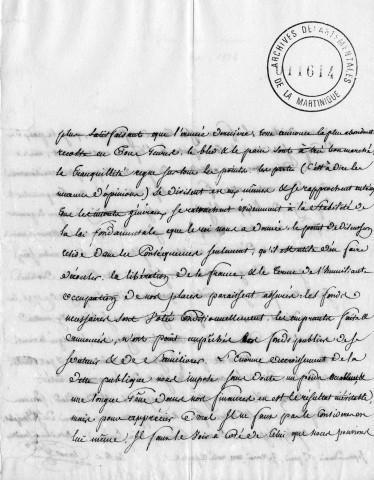 ARCHIVES DÉPARTEMENTALES
11614
DE LA MARTINIQUE
plus satisfaisant que l'année dernière, on annonce la plus abondante
récolte en tous genres, le bled & le pain sont à bon marché.
la tranquillité règne sur tous les points, les partis (c'est à dire les
nuances d'opinion) se divisent en eux mêmes & se rapprochent
que les intérêts généraux se rattachent évidemment à la stabilité de
la loi fondamentale que le roi nous a donnée. le point de discussion
reside dans les conséquences seulement, qu'il est utile d'en faire
découler. la libération de la france & le terme de l'humiliante
occupation de nos places paraissent assurés. les fonds
nécessaires sont votés conditionnellement. les emprunts faits &
annoncés, n'ont point empêché nos fonds publics de se
soutenir & de s'améliorer. L'énorme accroissement de la
dette publique nous impose sans doute un poids
une longue gêne dans nos finances en est le résultat inévitable,
mais pour apprécier ce mal il ne faut pas le considérer en
lui même, il faut le voir à côté de celui que nous pouvions